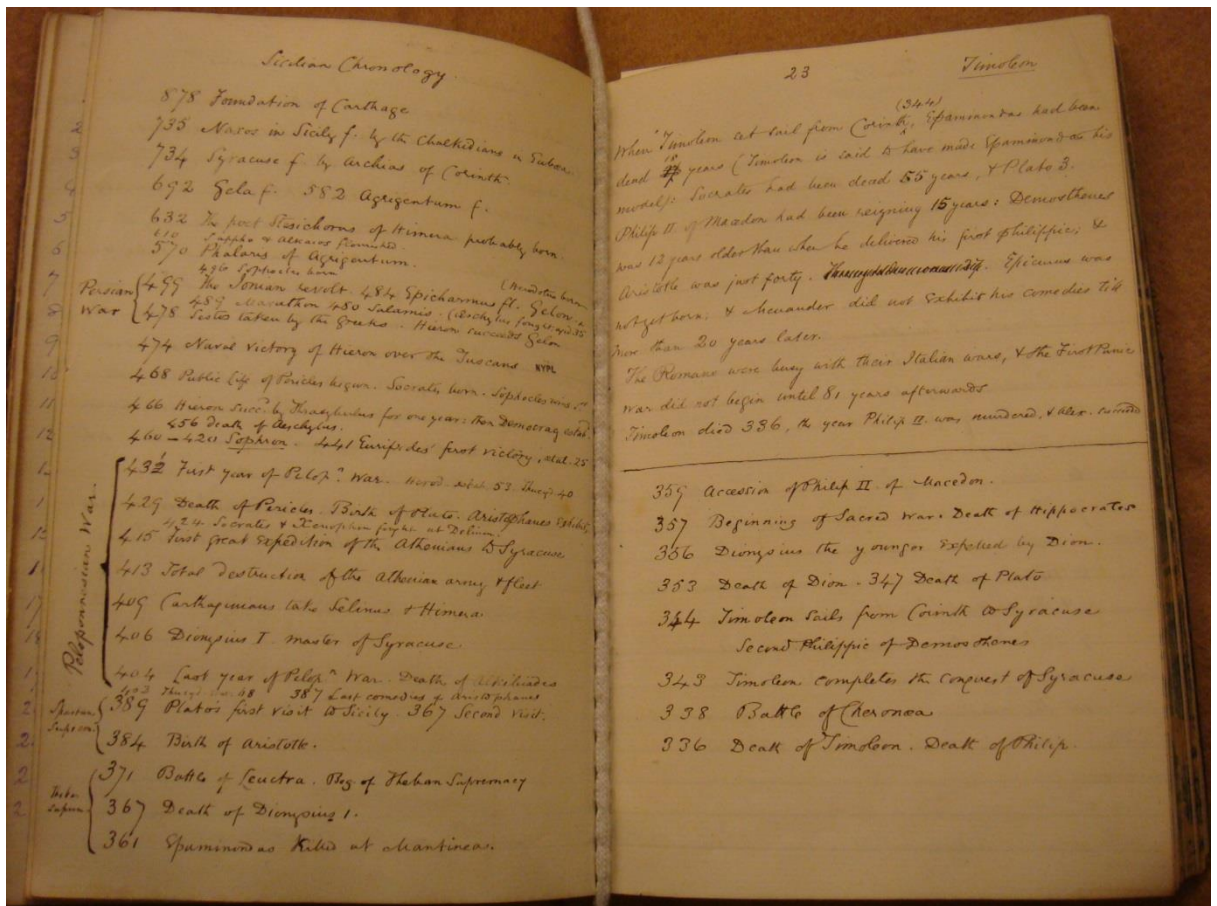 Sicilian Chronology.
878 Foundation of Carthage
735 Naxos in Sicily f. by the Chalkedians in Euboea.
734 Syracuse f. by Archias of Corinth.
692 Gela f. 582 Agrigentum f.
632 The poet Stesichorus of Himera probably born.
610 Sappho & Alkaios flourished.
570 Phalaris of Agrigentum.
496 Sophocles born
Persian War
499 The Ionian revolt. 484 Epicharmus fl. Gelon (Herodotus born
489 Marathon 480 Salamis. (Aeschylus fought aged 45
478 Sestos taken by the Greeks. Hieron succeeds Gelon
474 Naval victory of Hieron over the Tuscans NYPL
468 Public life of Pericles begun. Socrates born. Sophocles wins 1st
466 Hieron succd by Thrasybulus for one year: then Democracy estab
456 death of Aeschylus.
460–420 Sophron. 441 Euripides' first victory, aetat. 25
Peloponnesian War.
432 First year of Pelopn War. Herod. aetat 53. Thucyd 40
429 Death of Pericles. Birth of Plato. Aristophanes Exhibits
424. Socrates & Xenophon fought at Delium.
415 First great Expedition of the Athenians to Syracuse
413 Total destruction of the Athenian army & fleet
409 Carthaginians take Selinus & Himera
406 Dionysius I. master of Syracuse.
404 Last year of Pelopn War. Death of Alkibiades
403 Thucyd. 48 387 Last comedies of Aristophanes
Spartan Suprem.
389 Plato's first visit to Sicily. 367 Second visit.
384 Birth of Aristotle.
Theban Suprem.
371 Battle of Leuctra. Beg of Theban Supremacy
367 Death of Dionysius 1.
361 Epaminondas Killed at Mantinea.
23 Timoleon
(344)
When Timoleon set sail from Corinth, Epaminondas had been
dead 18 years (Timoleon is said to have made Epaminondas his
model): Socrates had been dead 55 years, & Plato 3.
Philip II. of Macedon had been reigning 15 years: Demosthenes
was 12 years older than when he delivered his first philippic; &
Aristotle was just forty. Epicurus was
not yet born; & Menander did not Exhibit his comedies till
more than 20 years later.
The Romans were busy with their Italian wars, & the First Punic
War did not begin until 81 years afterwards
Timoleon died 336, the year Philip II. was murdered, & Alex.
359 Accession of Philip II. of Macedon.
357 Beginning of Sacred War. Death of Hippocrates
356 Dionysius the younger Expelled by Dion.
353 Death of Dion. 347 Death of Plato
344 Timoleon Sails from Corinth to Syracuse
Second Philippic of Demosthenes
343 Timoleon completes the conquest of Syracuse
338 Battle of Cheronoea
336 Death of Timoleon. Death of Philip.